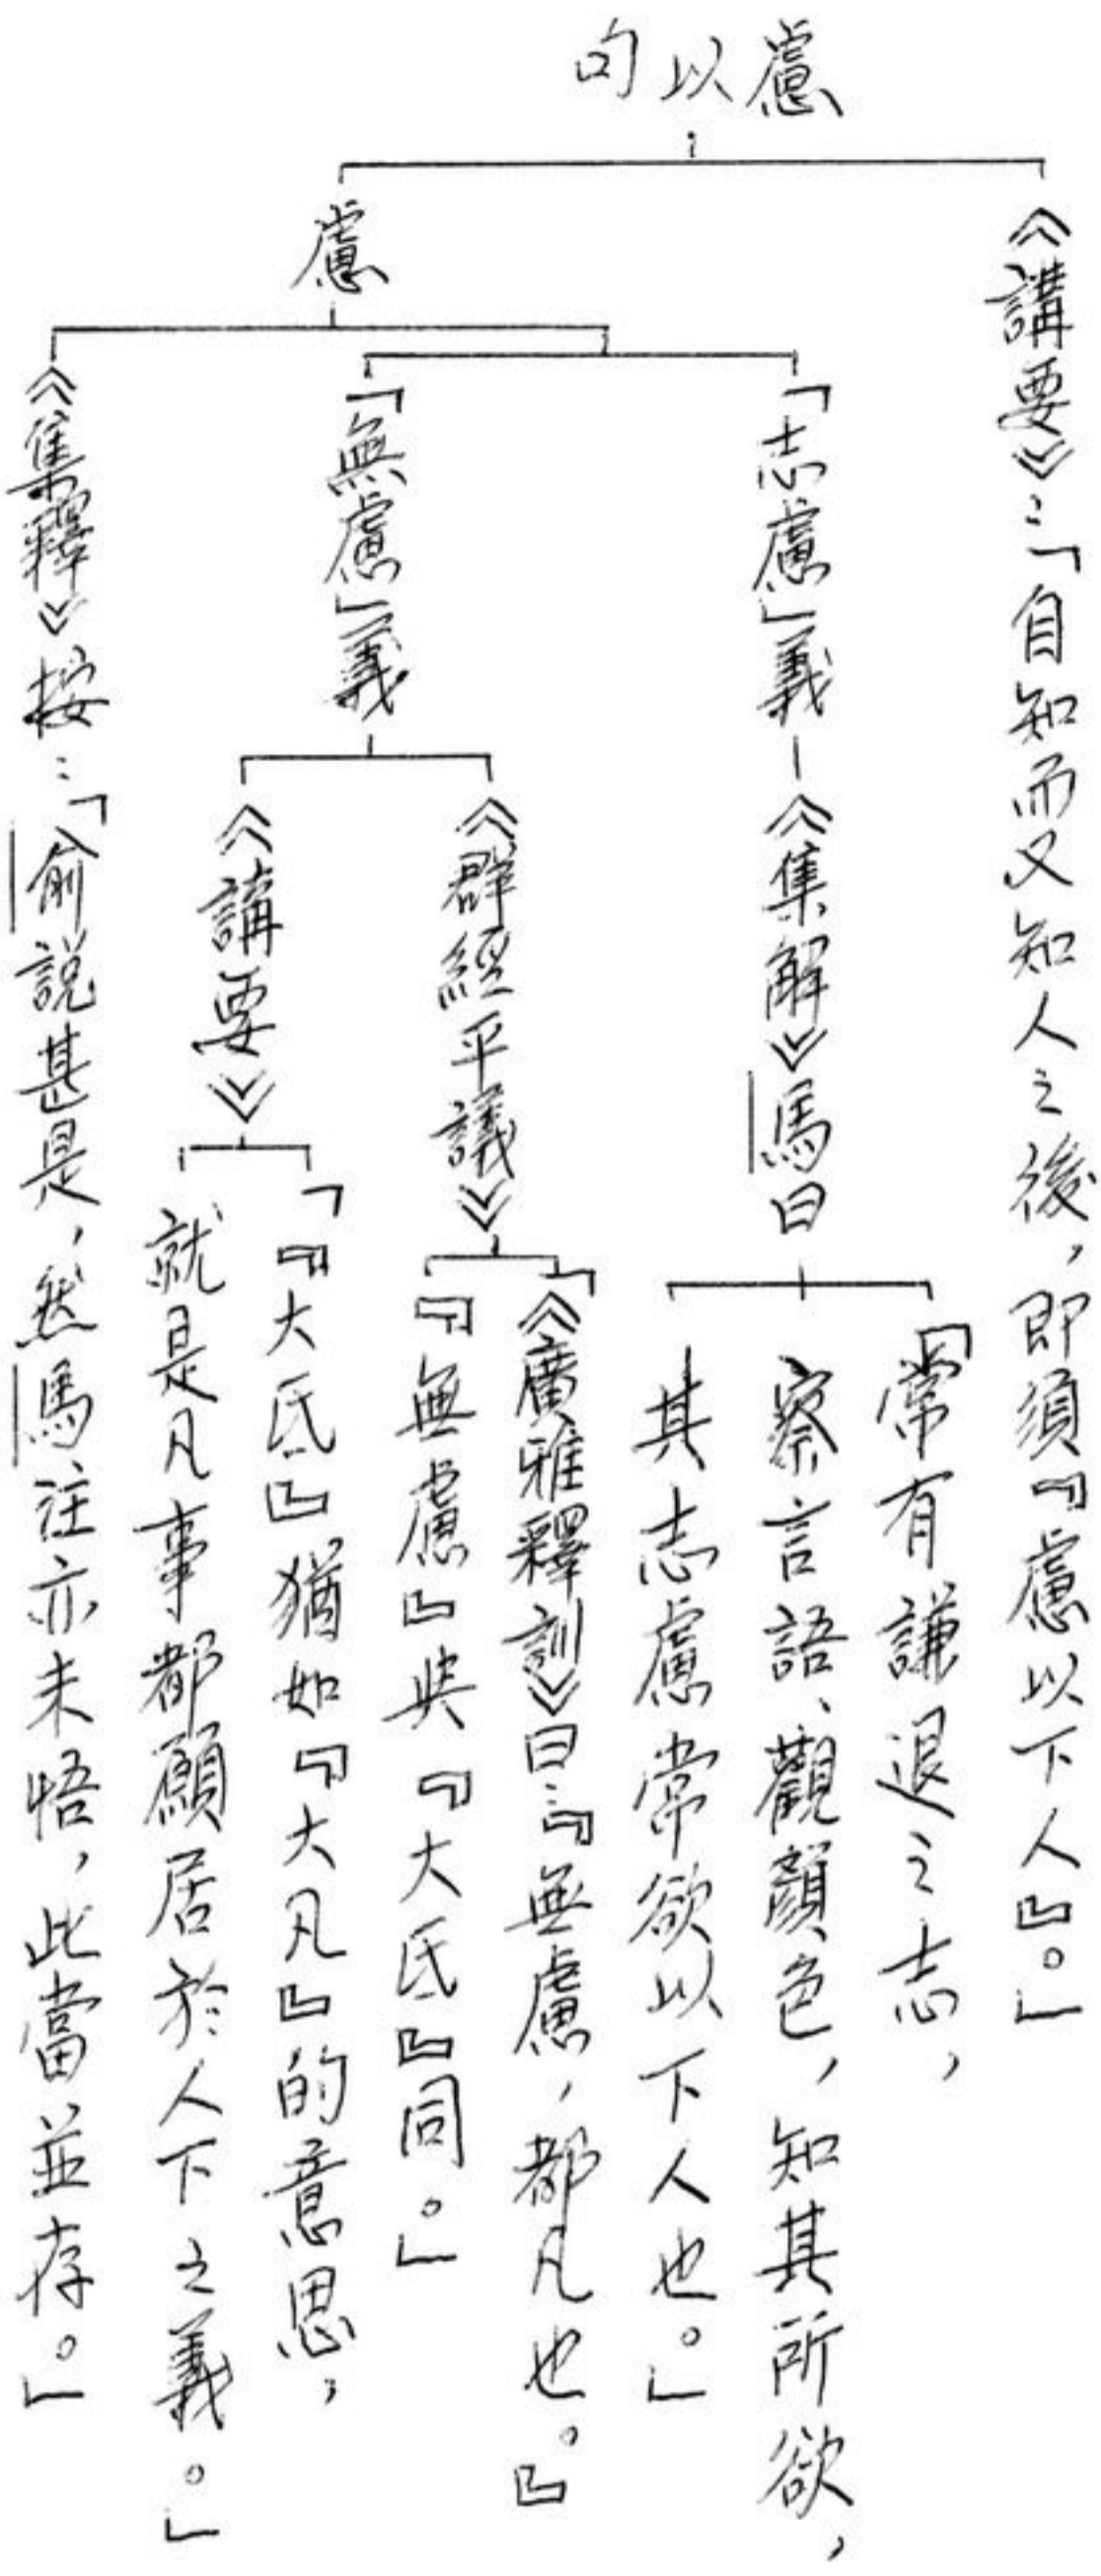 慮以句
《講要》：「自知而又知人之後，即須『慮以下人』。」
慮
「志慮」義
《集解》馬曰
「常有謙退之志，
察言語、觀顏色，知其所欲，
其志慮常欲以下人也。」
「無慮」義
《群經平議》
「《廣雅釋訓》曰：『無慮，都凡也。』
『無慮』與『大氐』同。」
《講要》
「『大氐』猶如『大凡』的意思，
就是凡事都願居於人下之義。」
《集釋》按：「俞說甚是，然馬注亦未悟，此當並存。」